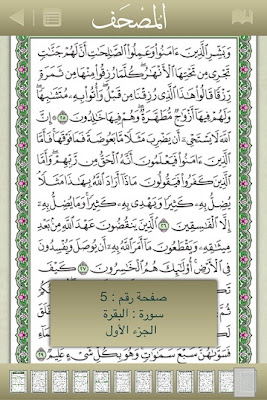 المصحف
وَبَشِّرِ ٱلَّذِينَ ءَامَنُوا۟ وَعَمِلُوا۟ ٱلصَّٰلِحَٰتِ أَنَّ لَهُمْ جَنَّٰتٍ
تَجْرِى مِن تَحْتِهَا ٱلْأَنْهَٰرُ ۖ كُلَّمَا رُزِقُوا۟ مِنْهَا مِن ثَمَرَةٍ
رِّزْقًا ۙ قَالُوا۟ هَٰذَا ٱلَّذِى رُزِقْنَا مِن قَبْلُ ۖ وَأُتُوا۟ بِهِۦ مُتَشَٰبِهًا ۖ
وَلَهُمْ فِيهَآ أَزْوَٰجٌ مُّطَهَّرَةٌ ۖ وَهُمْ فِيهَا خَٰلِدُونَ ٢٥ ۞ إِنَّ
ٱللَّهَ لَا يَسْتَحْىِۦٓ أَن يَضْرِبَ مَثَلًا مَّا بَعُوضَةً فَمَا فَوْقَهَا ۚ فَأَمَّا
ٱلَّذِينَ ءَامَنُوا۟ فَيَعْلَمُونَ أَنَّهُ ٱلْحَقُّ مِن رَّبِّهِمْ ۖ وَأَمَّا
ٱلَّذِينَ كَفَرُوا۟ فَيَقُولُونَ مَاذَآ أَرَادَ ٱللَّهُ بِهَٰذَا مَثَلًا ۘ
يُضِلُّ بِهِۦ كَثِيرًا وَيَهْدِى بِهِۦ كَثِيرًا ۚ وَمَا يُضِلُّ بِهِۦٓ
إِلَّا ٱلْفَٰسِقِينَ ٢٦ ٱلَّذِينَ يَنقُضُونَ عَهْدَ ٱللَّهِ مِنۢ بَعْدِ
مِيثَٰقِهِۦ وَيَقْطَعُونَ مَآ أَمَرَ ٱللَّهُ بِهِۦٓ أَن يُوصَلَ وَيُفْسِدُونَ
فِى ٱلْأَرْضِ ۚ أُو۟لَٰٓئِكَ هُمُ ٱلْخَٰسِرُونَ ٢٧ كَيْفَ
صفحة رقم : 5
سورة : البقرة
الجزء الأول
فَسَوَّىٰهُنَّ سَبْعَ سَمَٰوَٰتٍ ۚ وَهُوَ بِكُلِّ شَىْءٍ عَلِيمٌ ٢٩